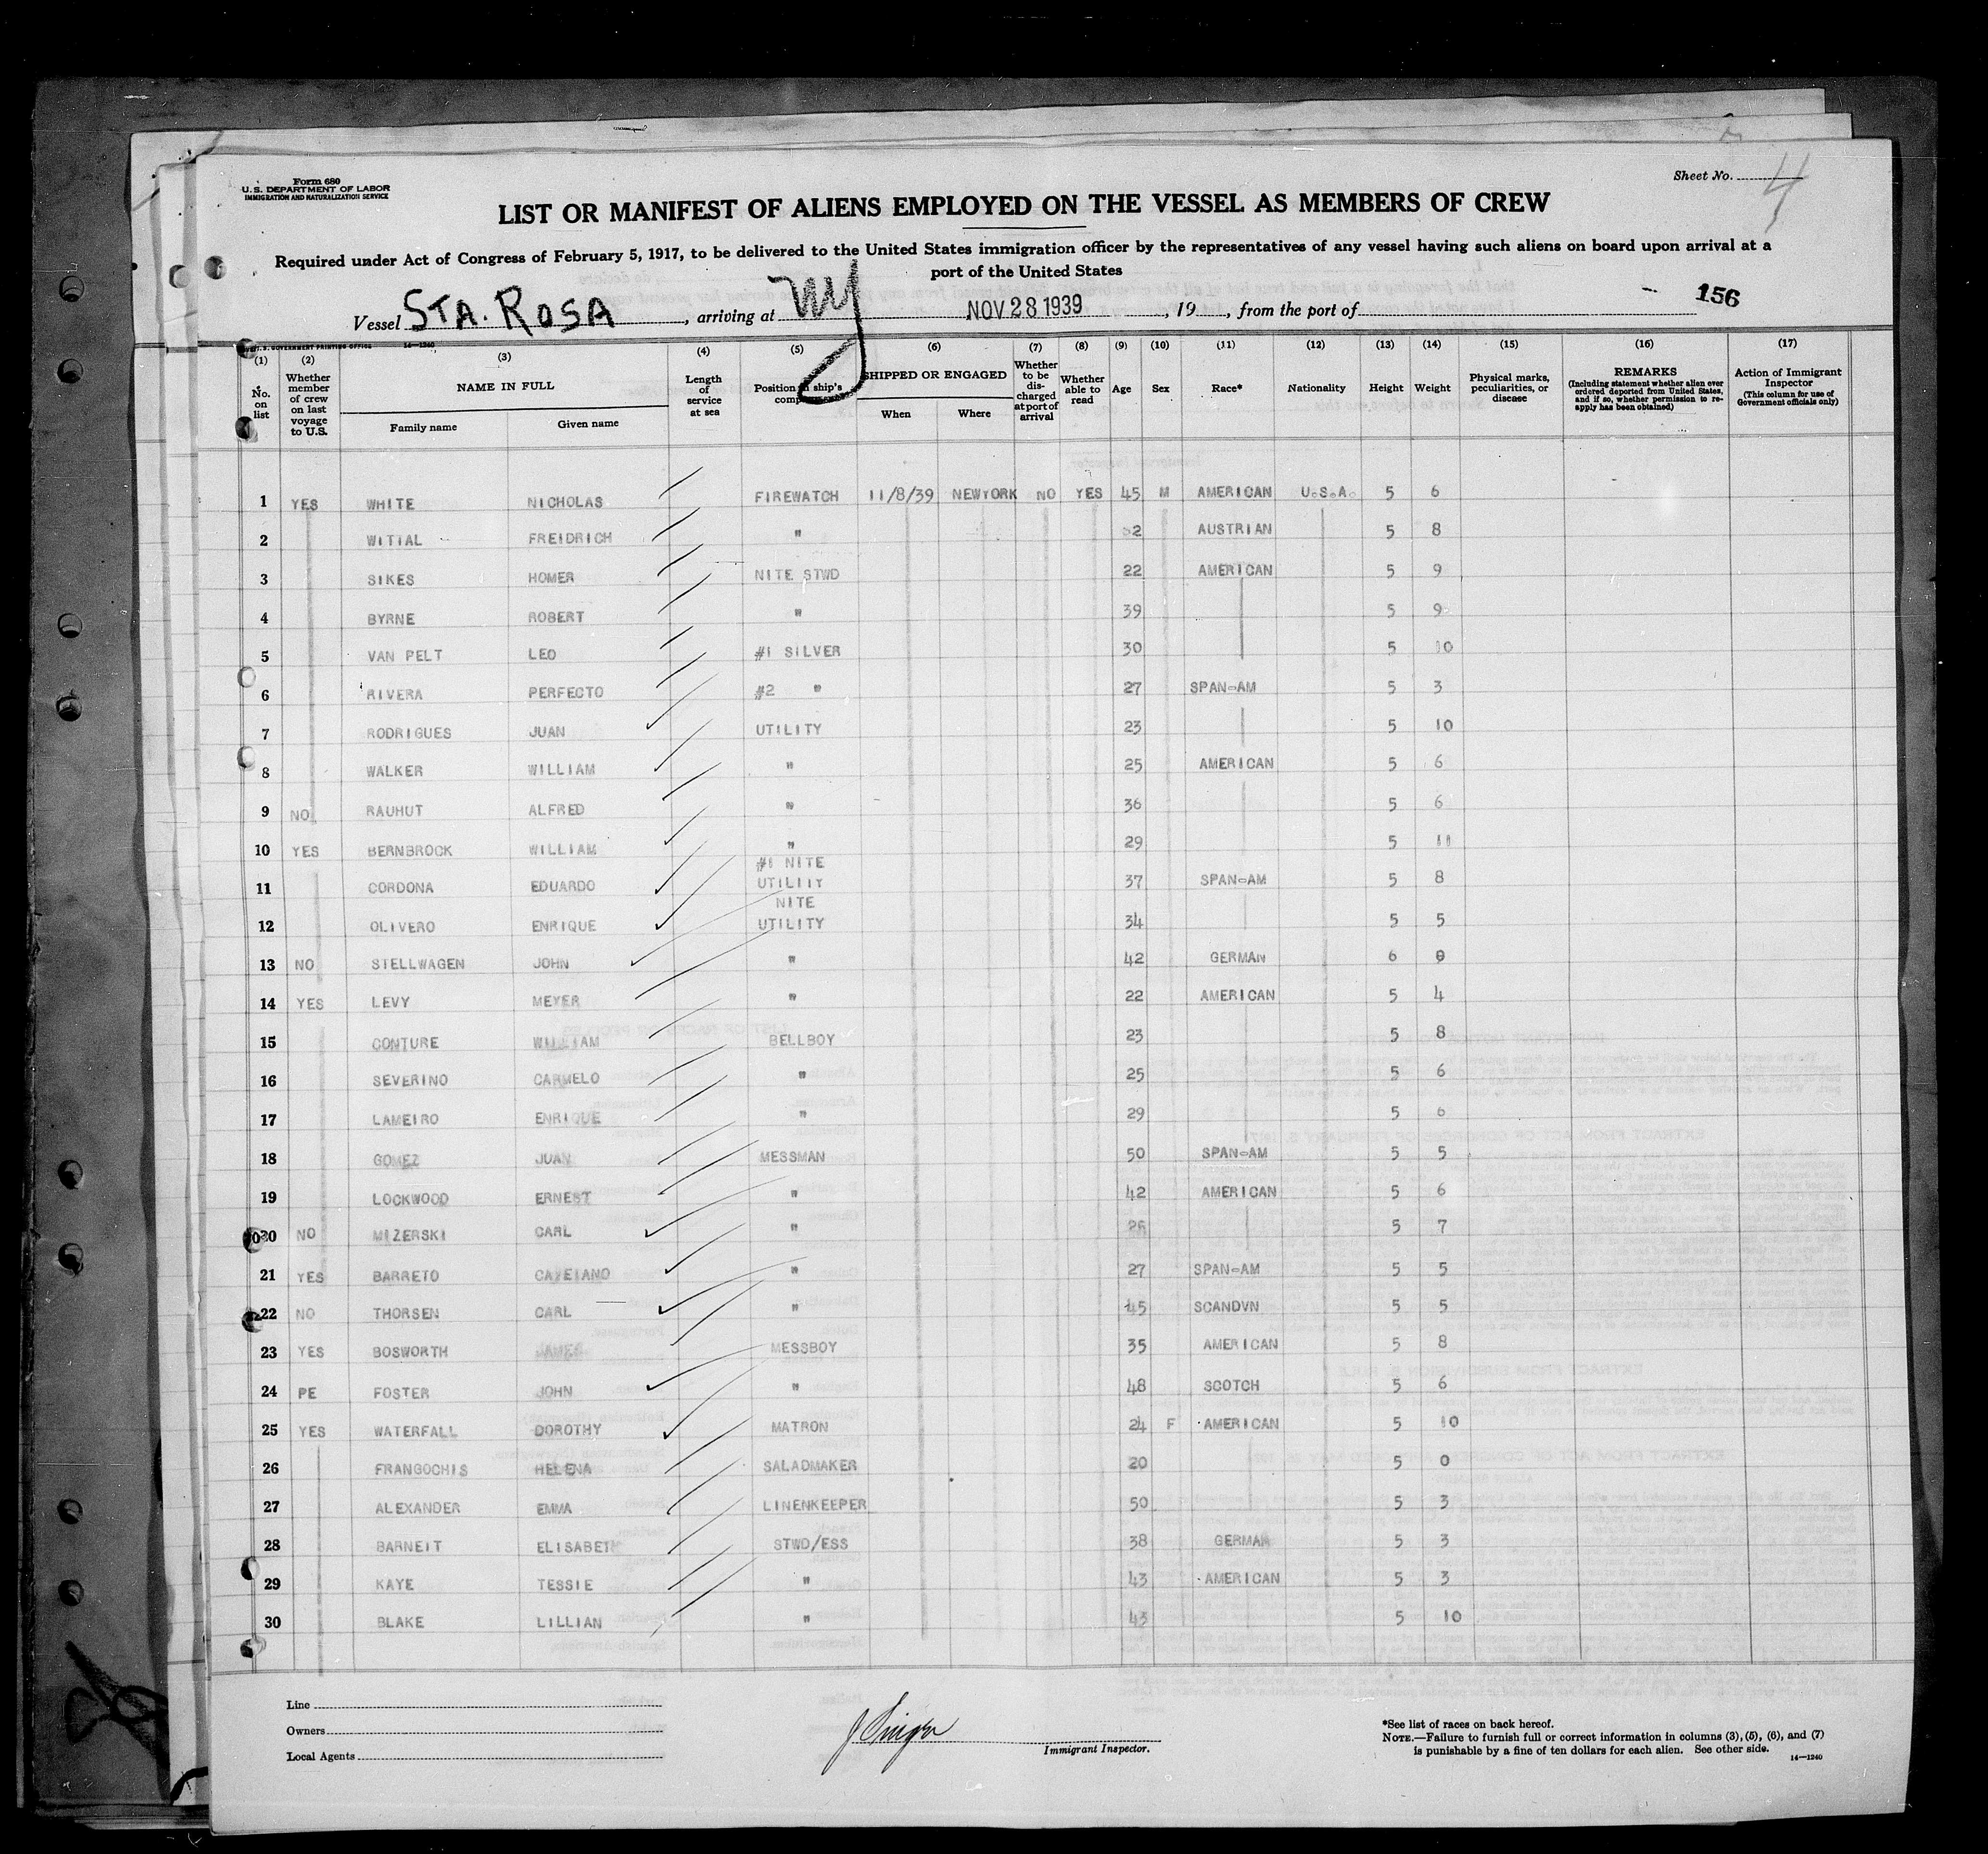 Form 680
U.S. DEPARTMENT OF LABOR
IMMIGRATION AND NATURALIZATION SERVICE
Sheet No. 4
LIST OR MANIFEST OF ALIENS EMPLOYED ON THE VESSEL AS MEMBERS OF CREW
Required under Act of Congress of February 5, 1917, to be delivered to the United States immigration officer by the representatives of any vessel having such aliens on board upon arrival at a
port of the United States
Vessel STA. ROSA, arriving at NY NOV 28 1939, 19, from the port of 156
U.S. GOVERNMENT PRINTING OFFICE 14—1240
(1) (2) (3) (4) (5) (6) (7) (8) (9) (10) (11) (12) (13) (14) (15) (16) (17)
No. on list
Whether member of crew on last voyage to U.S.
NAME IN FULL
Family name Given name
Length of service at sea
Position in ship's company
SHIPPED OR ENGAGED
When Where
Whether to be discharged at port of arrival
Whether able to read
Age Sex Race* Nationality Height Weight
Physical marks, peculiarities, or disease
REMARKS
(Including statement whether alien ever ordered deported from United States, and if so, whether permission to reapply has been obtained)
Action of Immigrant Inspector
(This column for use of Government officials only)
1 YES WHITE NICHOLAS FIREWATCH 11/8/39 NEWYORK NO YES 45 M AMERICAN U.S.A. 5 6
2 WITIAL FREIDRICH " 2 AUSTRIAN 5 8
3 SIKES HOMER NITE STWD 22 AMERICAN 5 9
4 BYRNE ROBERT " 39 5 9
5 VAN PELT LEO #1 SILVER 30 5 10
6 RIVERA PERFECTO #2 " 27 SPAN-AM 5 3
7 RODRIGUES JUAN UTILITY 23 5 10
8 WALKER WILLIAM " 25 AMERICAN 5 6
9 NO RAUHUT ALFRED " 36 5 6
10 YES BERNBROCK WILLIAM " 29 5 11
11 CORDONA EDUARDO #1 NITE UTILITY 37 SPAN-AM 5 8
12 OLIVERO ENRIQUE NITE UTILITY 34 5 5
13 NO STELLWAGEN JOHN " 42 GERMAN 6 0
14 YES LEVY MEYER " 22 AMERICAN 5 4
15 CONTURE WILLIAM BELLBOY 23 5 8
16 SEVERINO CARMELO " 25 5 6
17 LAMEIRO ENRIQUE " 29 5 6
18 GOMEZ JUAN MESSMAN 50 SPAN-AM 5 5
19 LOCKWOOD ERNEST " 42 AMERICAN 5 6
20 NO MIZERSKI CARL " 26 5 7
21 YES BARRETO CAYEIANO " 27 SPAN-AM 5 5
22 NO THORSEN CARL " 45 SCANDVN 5 5
23 YES BOSWORTH JAMES MESSBOY 35 AMERICAN 5 8
24 PE FOSTER JOHN " 48 SCOTCH 5 6
25 YES WATERFALL DOROTHY MATRON 24 F AMERICAN 5 10
26 FRANGOCHIS HELENA SALADMAKER 20 5 0
27 ALEXANDER EMMA LINENKEEPER 50 5 3
28 BARNEIT ELISABETH STWD/ESS 38 GERMAN 5 3
29 KAYE TESSIE " 43 AMERICAN 5 3
30 BLAKE LILLIAN " 43 5 10
Line
Owners
Local Agents
Immigrant Inspector.
*See list of races on back hereof.
NOTE.—Failure to furnish full or correct information in columns (3), (5), (6), and (7)
is punishable by a fine of ten dollars for each alien. See other side.
14—1240